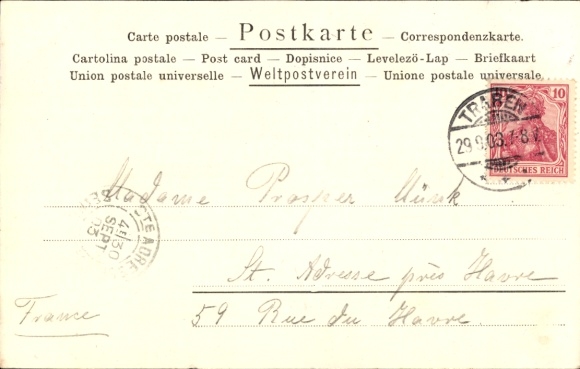 Carte postale — Postkarte — Correspondenzkarte.
Cartolina postale — Post card — Dopisnice — Levelezö-Lap — Briefkaart
Union postale universelle — Weltpostverein — Unione postale universale.
10
DEUTSCHES REICH
TRARBEN
29.9.03.7-8
Madame Prosper Münk
STE ADRESSE
30
SEPT
03
St. Adresse près Havre
59 Rue du Havre.
France